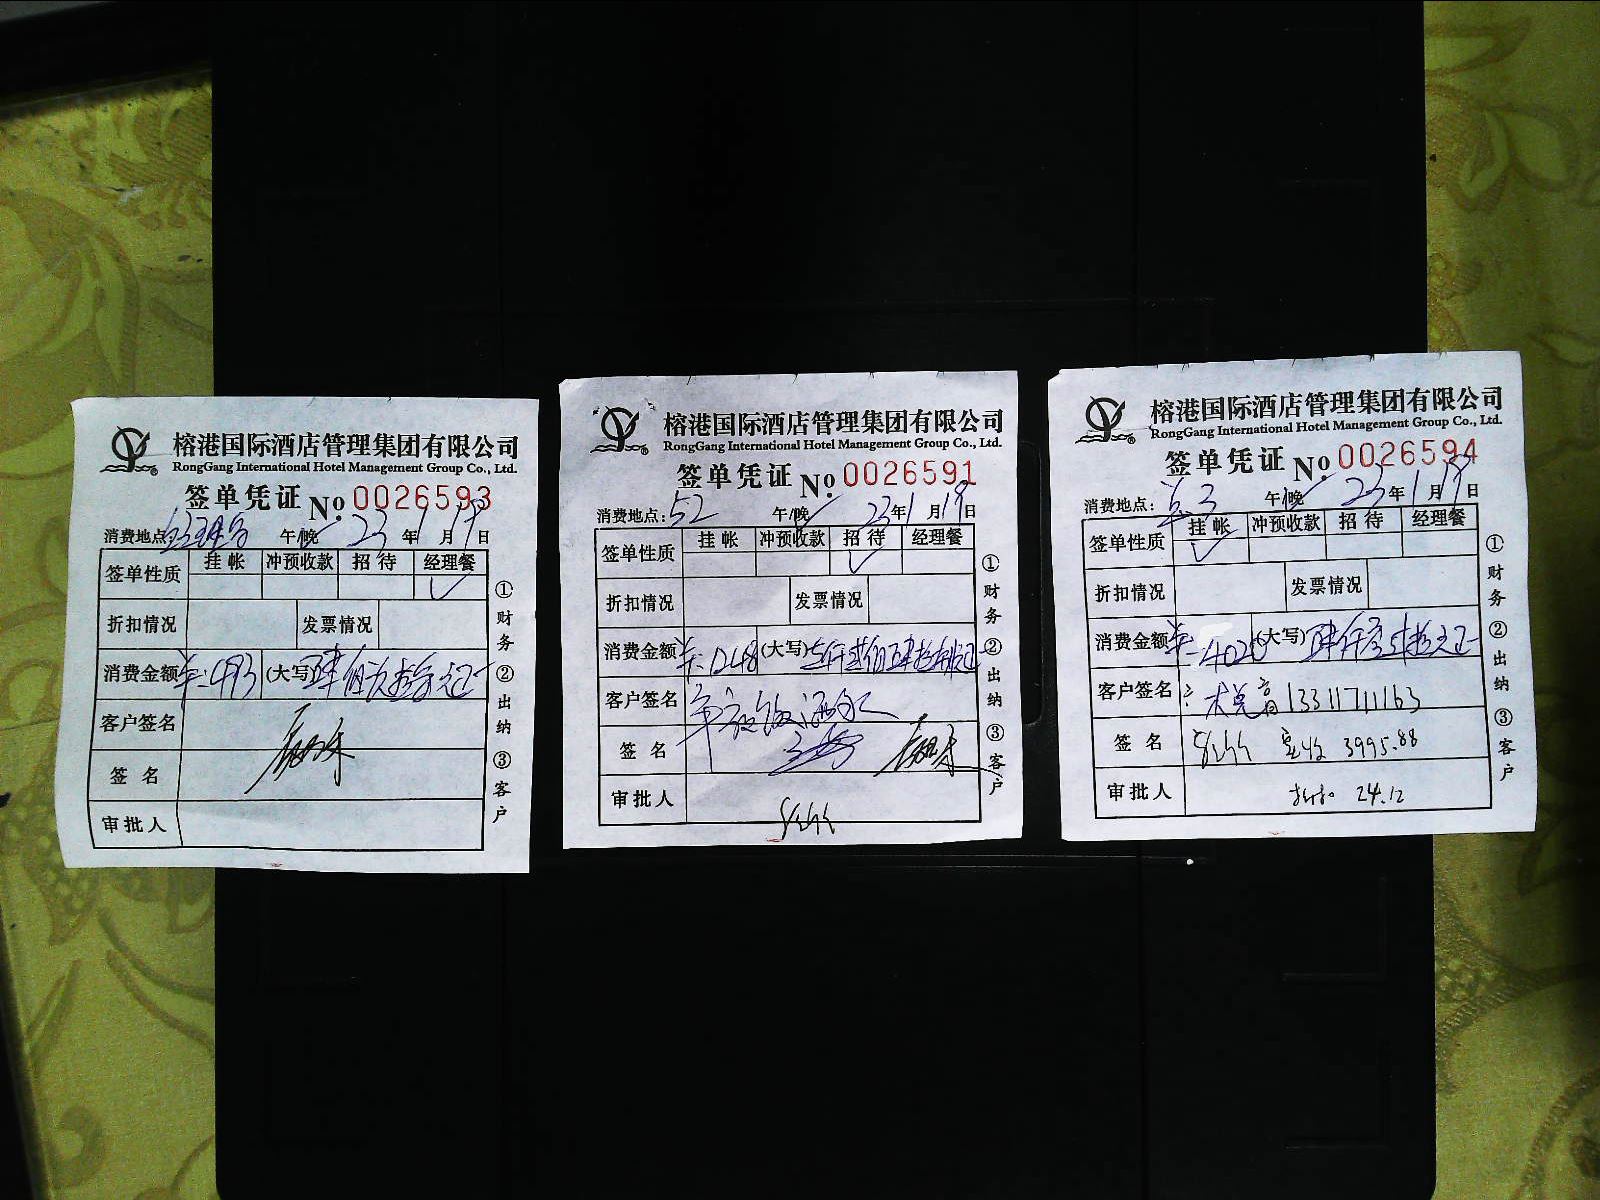 榕港国际酒店管理集团有限公司
RongGang International Hotel Management Group Co., Ltd.
签单凭证 No. 0026593
消费地点: 午/晚 23年1月19日
签单性质 挂帐 冲预收款 招待 经理餐
✓
折扣情况 发票情况
消费金额 ¥:493 (大写)肆佰玖拾叁元正
客户签名
签名
审批人
①财务
②出纳
③客户
榕港国际酒店管理集团有限公司
RongGang International Hotel Management Group Co., Ltd.
签单凭证 No. 0026591
消费地点: 52 午/晚 23年1月19日
签单性质 挂帐 冲预收款 招待 经理餐
✓
折扣情况 发票情况
消费金额 (大写)
客户签名
签名
审批人
①财务
②出纳
③客户
榕港国际酒店管理集团有限公司
RongGang International Hotel Management Group Co., Ltd.
签单凭证 No. 0026594
消费地点: 午/晚 23年1月19日
签单性质 挂帐 冲预收款 招待 经理餐
✓
折扣情况 发票情况
消费金额 ¥:4020 (大写)
客户签名 13311711163
签名 实收 3995.88
审批人 折扣 24.12
①财务
②出纳
③客户